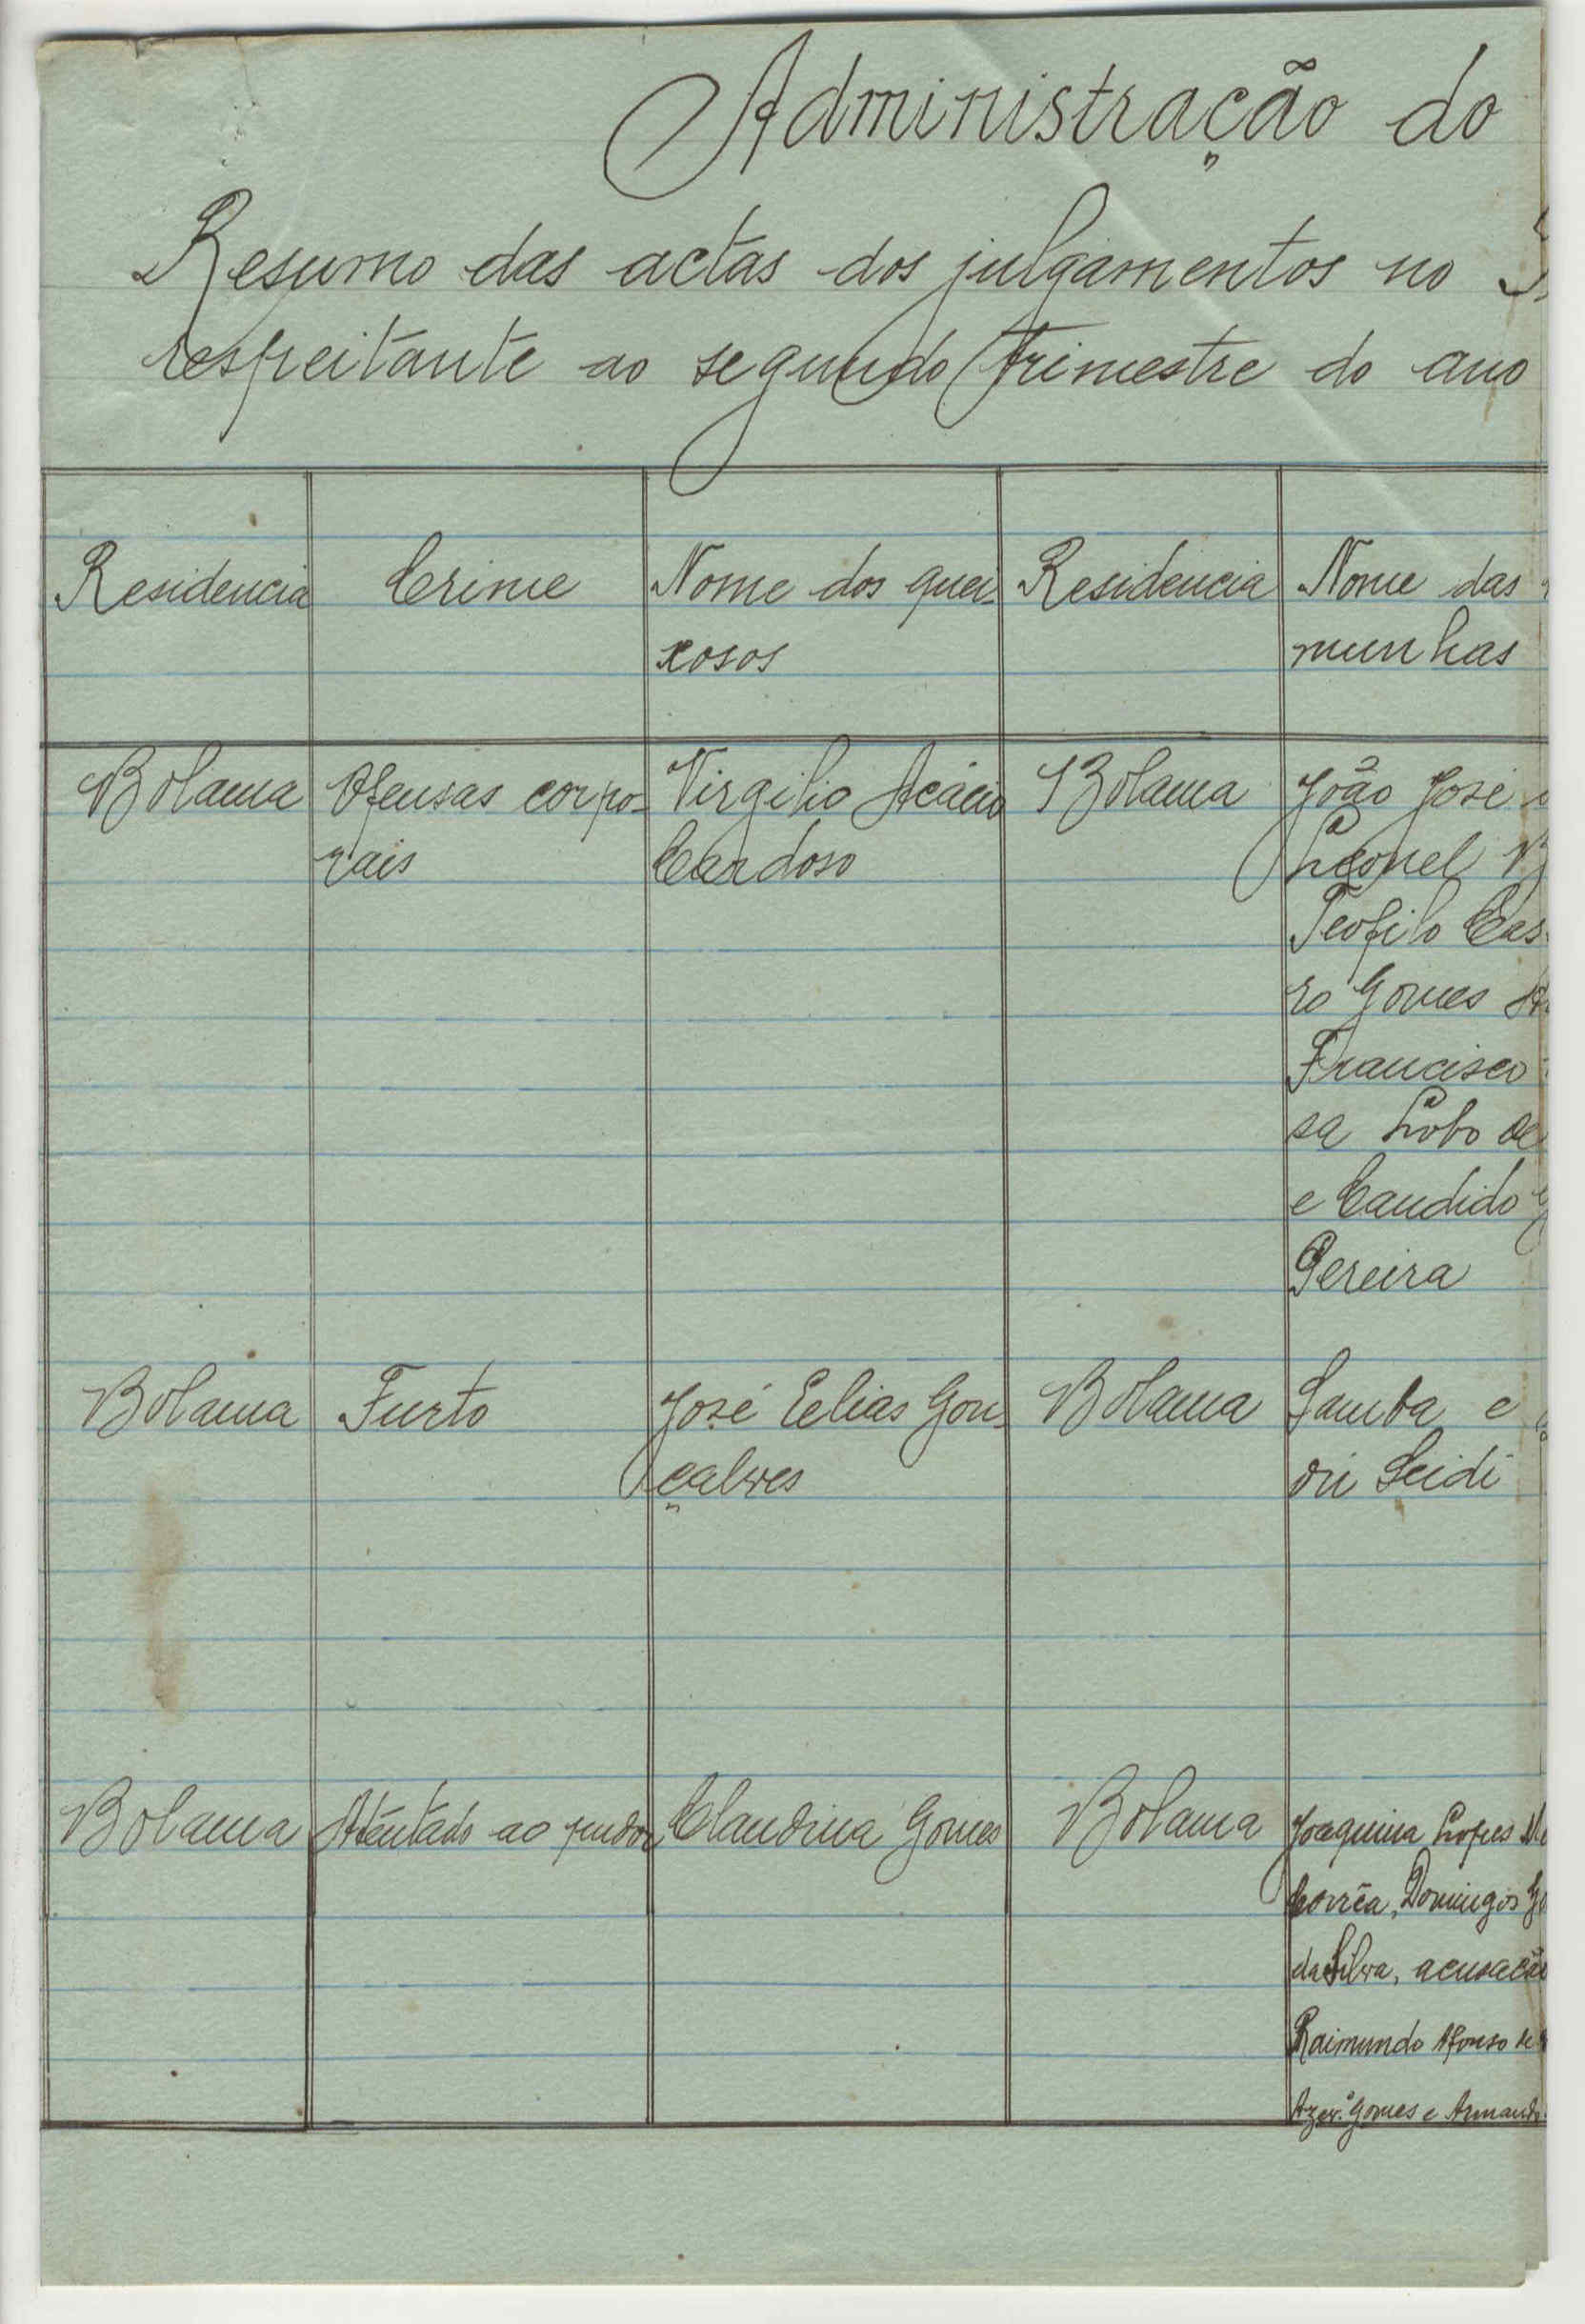 Administração do
Resumo das actas dos julgamentos no
respeitante ao segundo trimestre do ano
Residencia Crime Nome dos quei- Residencia Nome das
xosos munhas
Bolama Ofensas corpo- Virgilio Acácio Bolama João José
rais Cardoso Leonel
Teofilo Cas
ro Gomes
Francisco
sa Lobo de
e Candido
Pereira
Bolama Furto José Elias Gon- Bolama Samba e
çalves ori Seidi
Bolama Atentado ao pudor Claudina Gomes Bolama Joaquina Lopes
Corrêa, Domingos
da Silva, acusaçã
Raimundo Afonso de
Azev.º Gomes e Armando